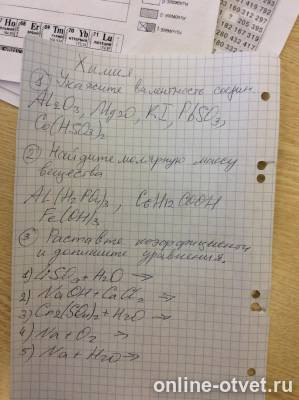 Химия.
① Укажите валентность соедин.
Al2O3, Mg2O, KI, PbSO3,
Co(HSO3)2
② Найдите молярную массу
вещества
AL(H2PO4)3, C6H12COOH
Fe(OH)3
③ Расставте коэффициенты
и допишите уравнения.
1) LiSO3+H2O →
2) NaOH+CaCl2 →
3) Cr2(SO4)2+H2O →
4) Na+O2 →
5) Na+H2O →
online-otvet.ru